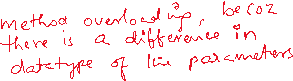 method overloading, becoz
there is a difference in
datatype of the parameters